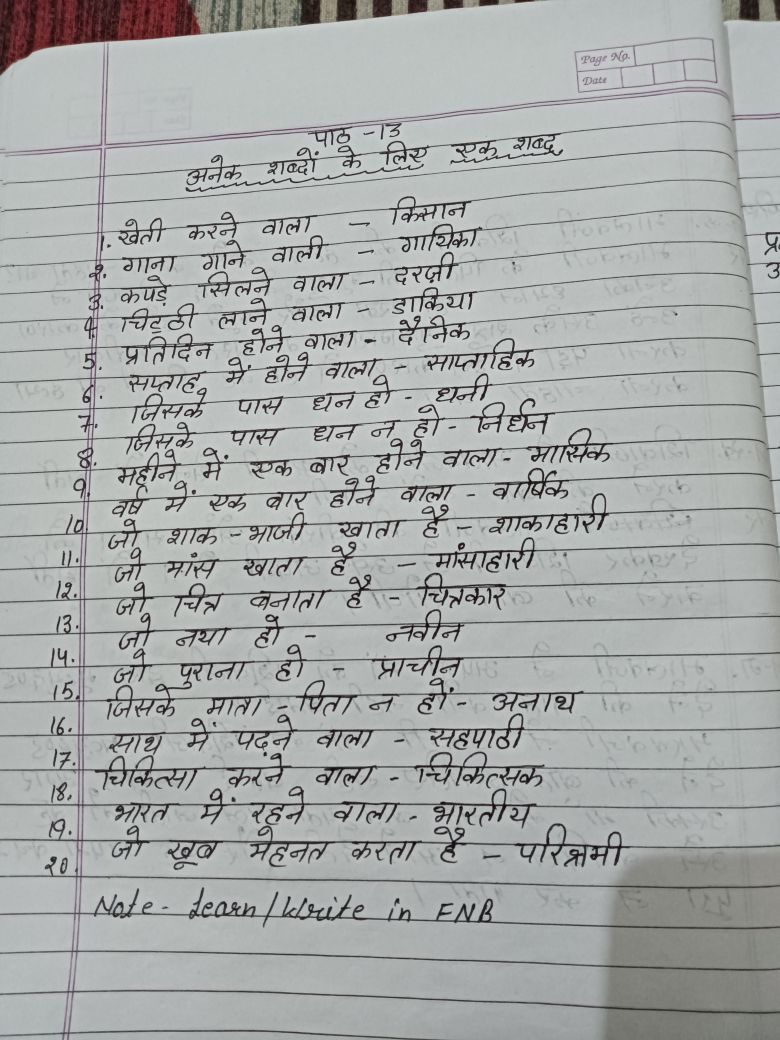 Page No.
Date
पाठ -13
अनेक शब्दों के लिए एक शब्द
1. खेती करने वाला - किसान
2. गाना गाने वाली - गायिका
3. कपड़े सिलने वाला - दरज़ी
4. चिट्ठी लाने वाला - डाकिया
5. प्रतिदिन होने वाला - दैनिक
6. सप्ताह में होने वाला - साप्ताहिक
7. जिसके पास धन हो - धनी
8. जिसके पास धन न हो - निर्धन
9. महीने में एक बार होने वाला - मासिक
10. वर्ष में एक बार होने वाला - वार्षिक
11. जो शाक - भाजी खाता है - शाकाहारी
12. जो मांस खाता है - मांसाहारी
13. जो चित्र बनाता है - चित्रकार
14. जो नया हो - नवीन
15. जो पुराना हो - प्राचीन
16. जिसके माता - पिता न हों - अनाथ
17. साथ में पढ़ने वाला - सहपाठी
18. चिकित्सा करने वाला - चिकित्सक
19. भारत में रहने वाला - भारतीय
20. जो खूब मेहनत करता है - परिश्रमी
Note - Learn/Write in FNB